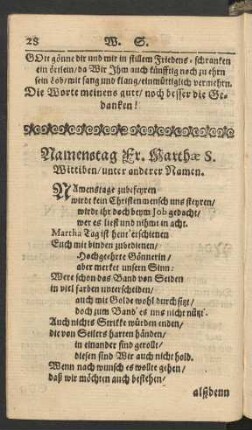 28 W. S.
GOtt gönne dir und mir in stillem Friedens-schranken
ein örtlein/ da Wir Jhm auch künfftig noch zu ehrn
sein Lob/ mit sang und klang/ einmütiglich vermehrn.
Die Worte meinens gut/ noch besser die Ge-
danken!
Namenstag Fr. Marthæ S.
Wittiben/ unter anderer Namen.
NAmenstage zubefeyren
wirdt kein Christenmensch uns steyren/
wirdt ihr doch beym Job gedacht/
wer es liest und nihmt in acht.
Martha Tag ist heut' erschienen
Euch mit binden zubedienen/
Hochgeehrte Gönnerin/
aber merket unsern Sinn:
Were schon das Band von Seiden
in viel farben unterscheiden/
auch mit Golde wohl durchsitzt/
doch zum Band' es uns nicht nützt.
Auch nichts Strikke würden enden/
die von Seilers harten händen/
in einander sind gerollt/
diesen sind Wir auch nicht hold.
Wenn nach wunsch es wollte gehen/
daß wir möchten auch bestehen/
alßdenn